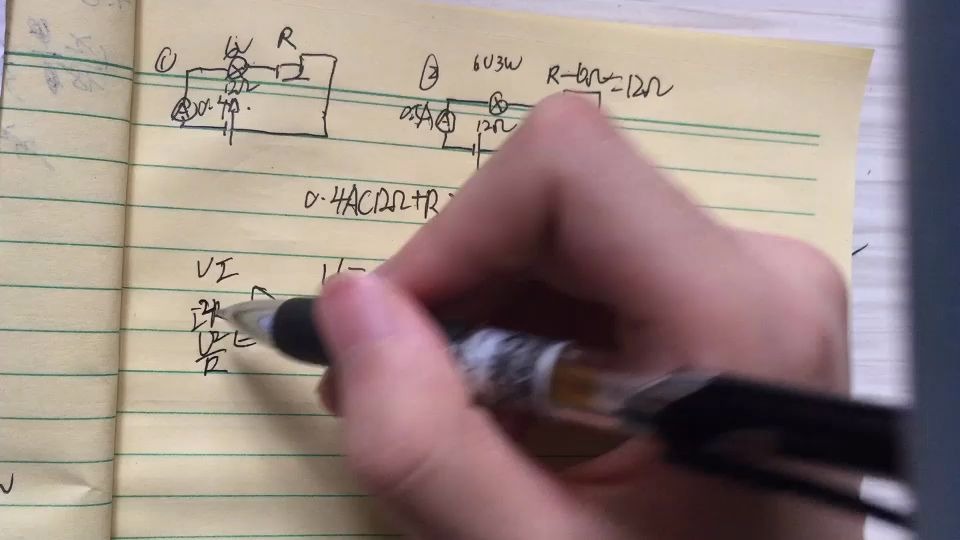 ① R
12Ω
0.4A
② 6V3W R-6Ω=12Ω
0.5A
12Ω
0.4A(12Ω+R
UI
U=
I²R
U²
R